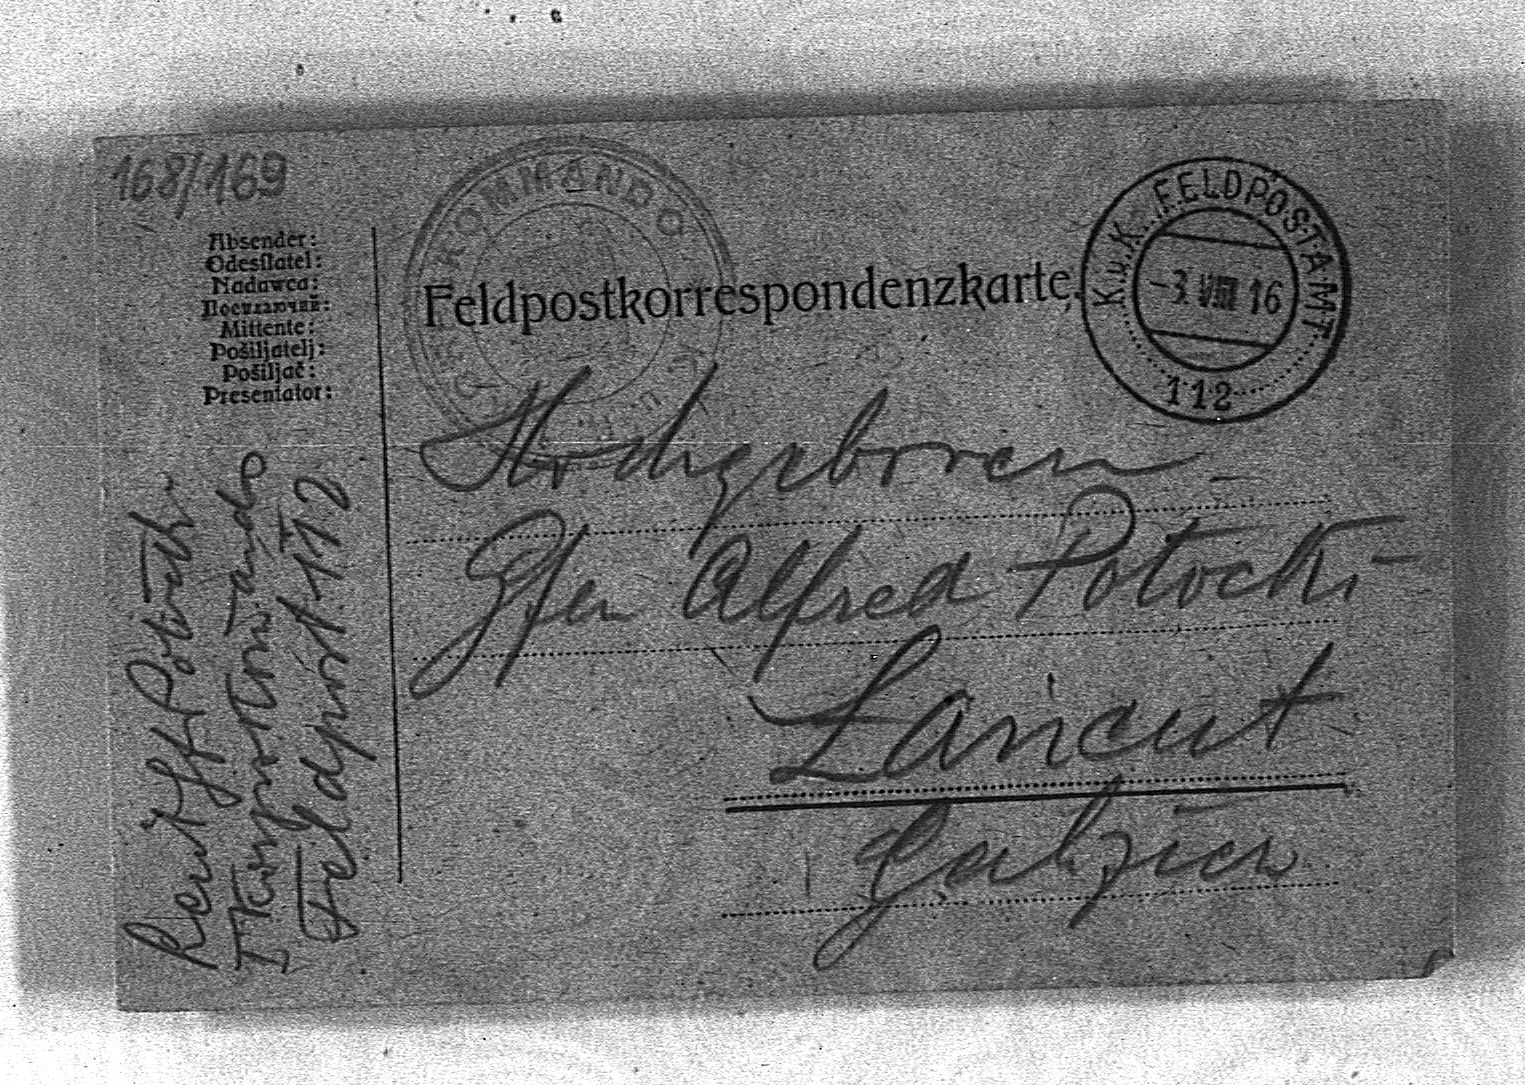 168/169
Absender:
Odesílatel:
Nadawca:
Посилаючий:
Mittente:
Pošiljatelj:
Pošiljač:
Presentator:
KOMMANDO
Feldpostkorrespondenzkarte.
K.u.K. FELDPOSTAMT
-3. VIII 16
112
Hochgeboren
Gfen Alfred Potocki
Łańcut
Galizien
Potocki
Korpskomando
Feldpost 112